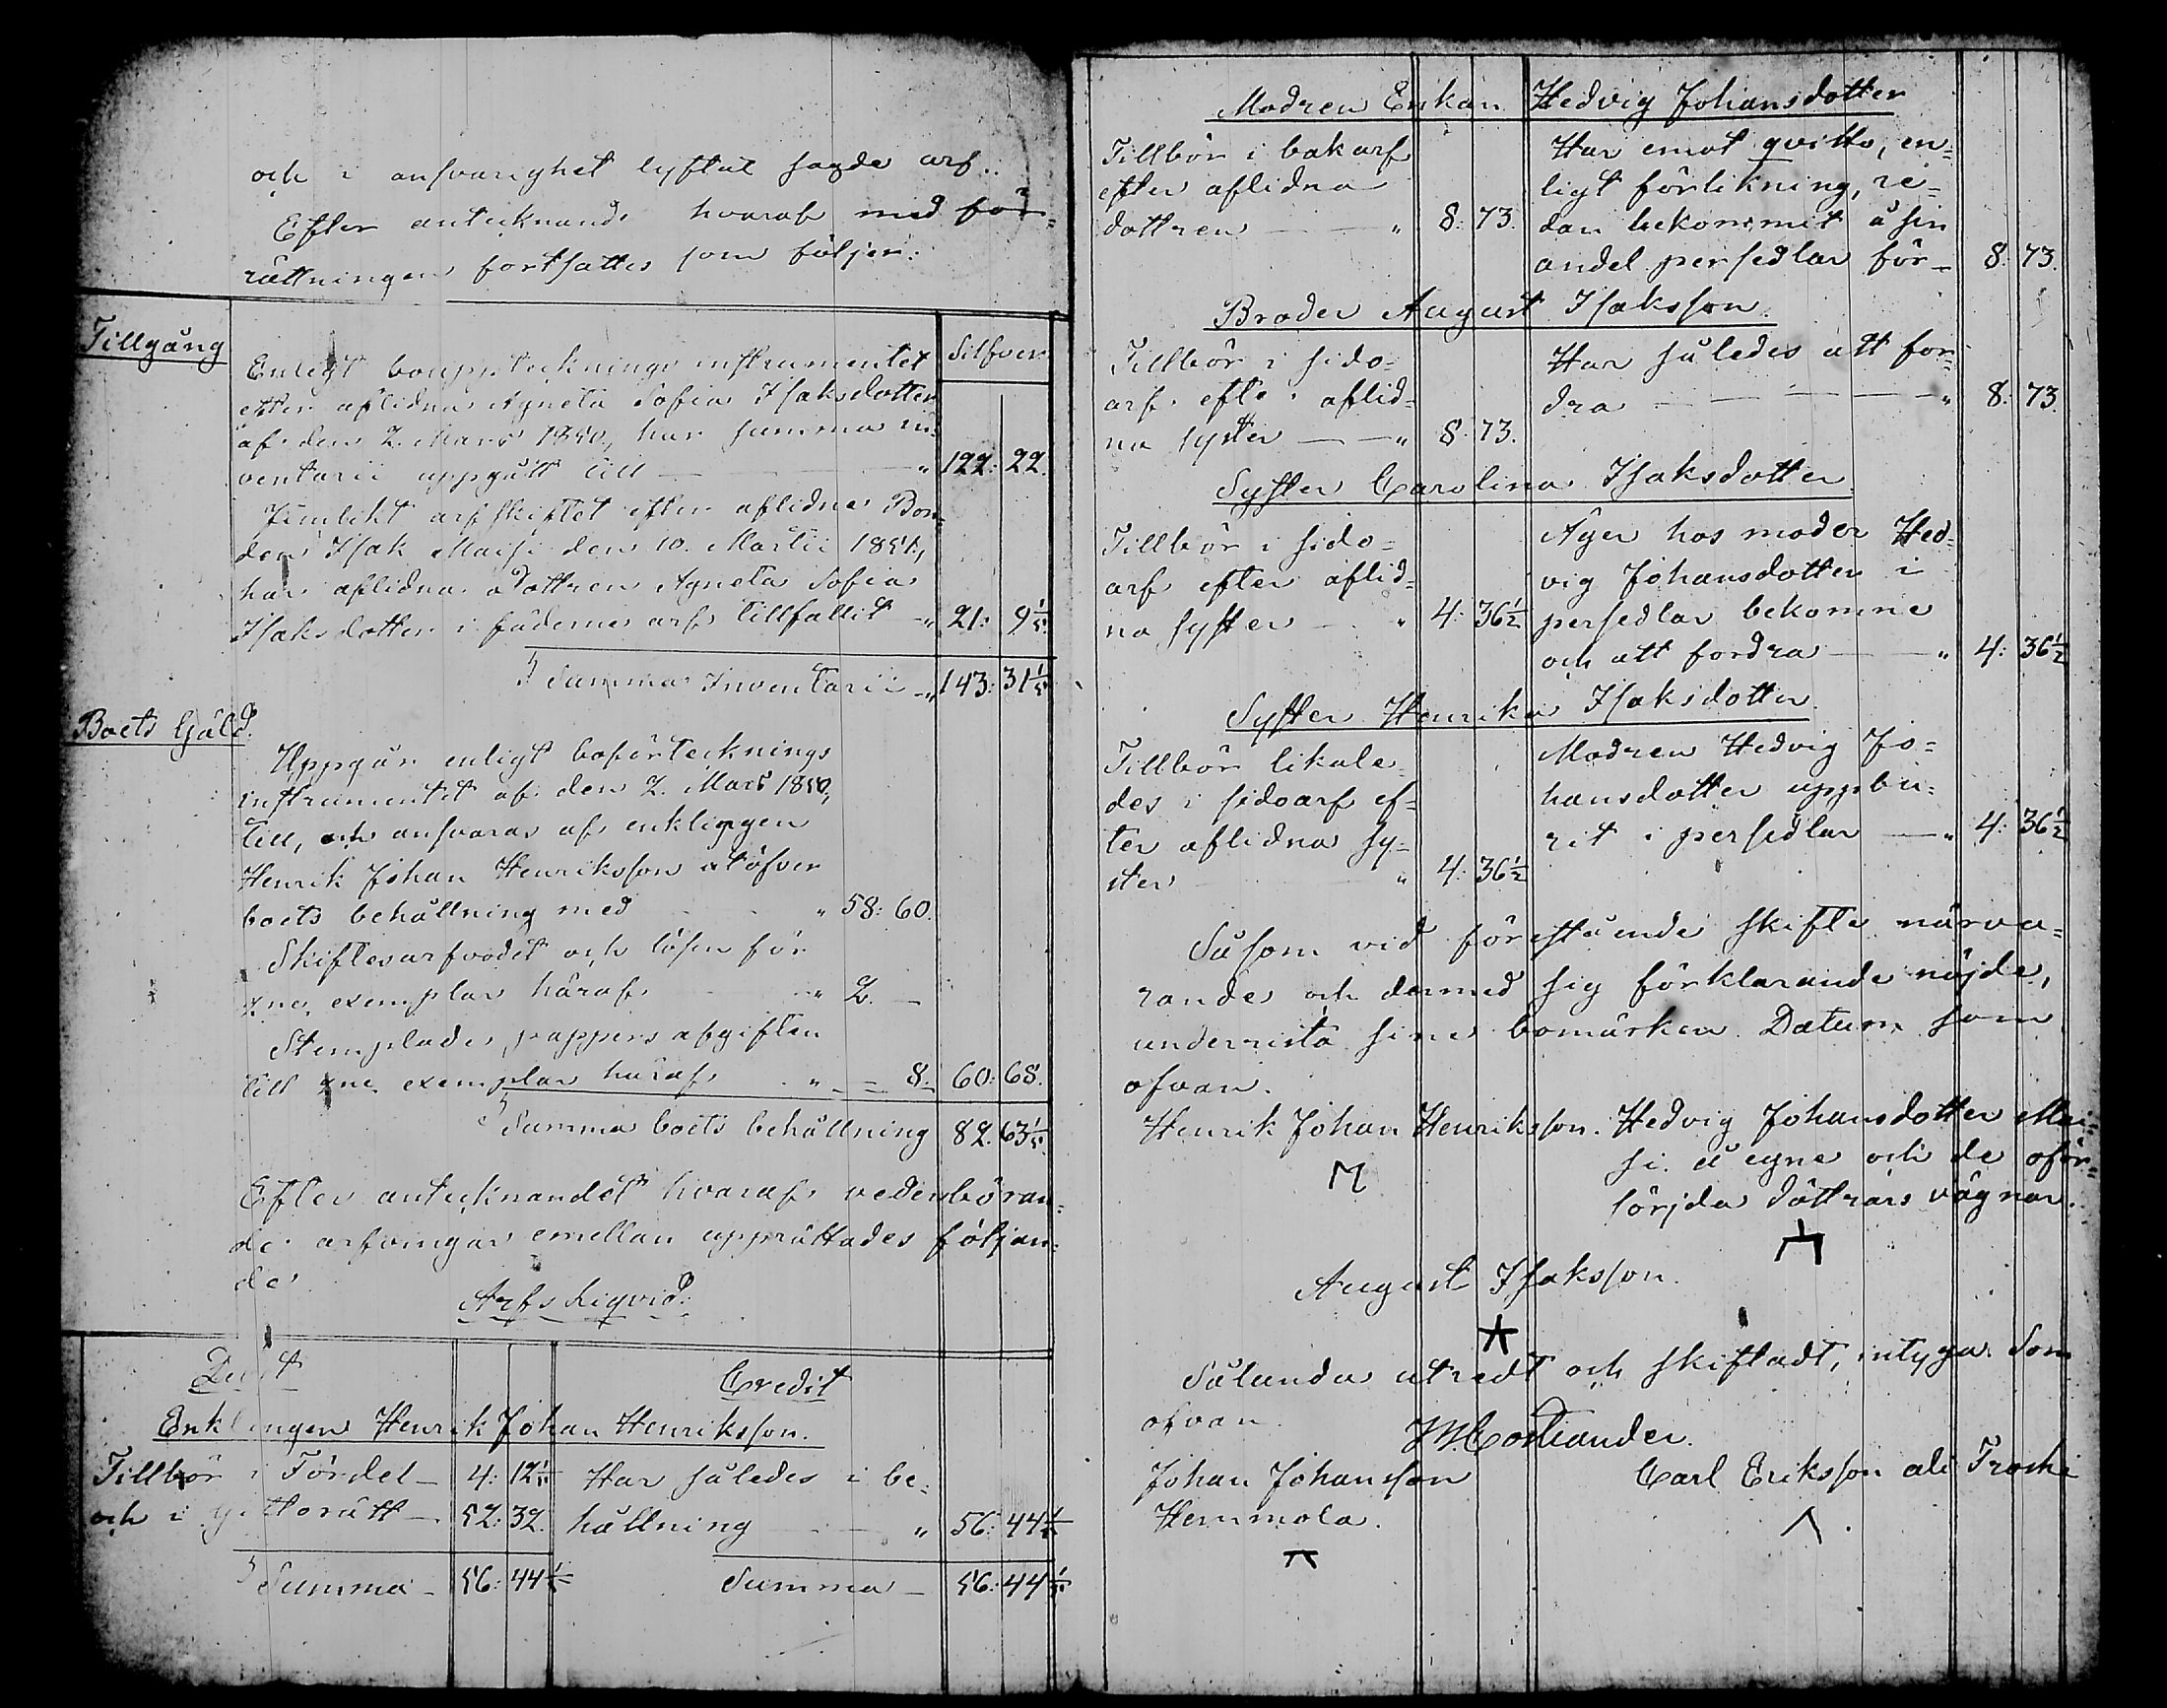 och i ansvarighet lyftat sagde arf.
Efter antecknande hvaraf med för-
rättningen fortsattes som följer:
Tillgång
Silfver
Enligt boupptecknings instrumentet
efter aflidna Agneta Sofia Isaksdotter
af den 2. Mars 1850, har summa in-
ventarii uppgått till — " 122: 22.
Jemlikt arfskiftet efter aflidne Bon-
den Isak Maisi den 10. Martii 1851,
har aflidna dottren Agneta Sofia
Isaksdotter i fädernearf tillfallit — " 21: 9 1/5.
Summa Inventarii — " 143: 31 1/5
Boets Gäld.
Uppgår enligt boförtecknings
instrumentet af den 2. Mars 1850,
till, och ansvaras af enklingen
Henrik Johan Henriksson utöfver
boets behållning med " 58: 60.
Skiftesarfvodet och lösen för
2ne exemplar häraf " 2. —
Stemplade pappers afgiften
till 2ne exemplar häraf " — 8. 60: 68.
Summa boets behållning 82. 63 1/5.
Efter antecknandet hvaraf vederböran-
de arfvingar emellan upprättades följan-
de
Arfs Liqvid:
Debet Credit
Enklingen Henrik Johan Henriksson.
Tillbör i Fördel — 4: 12 1/5 Har således i be-
och i giftorätt — 52: 32. hållning — " 56: 44 1/5
Summa — 56: 44 1/5 Summa — 56: 44 1/5
Modren Enkan Hedvig Johansdotter
Tillbör i bakarf
efter aflidna
dottren — " 8: 73.
Har emot qvitto, en-
ligt förlikning, re-
dan bekommit å sin
andel persedlar för — 8: 73.
Broder August Isaksson.
Tillbör i sido-
arf efter aflid-
na syster — " 8: 73.
Har således att for-
dra — " 8: 73.
Syster Carolina Isaksdotter.
Tillbör i sido-
arf efter aflid-
na syster — " 4: 36 1/2
Äger hos moder Hed-
vig Johansdotter i
persedlar bekomne
och att fordra — " 4: 36 1/2
Syster Henrika Isaksdotter.
Tillbör likale-
des i sidoarf ef-
ter aflidna sy-
ster " 4: 36 1/2
Modren Hedvig Jo-
hansdotter uppbu-
rit i persedlar — " 4: 36 1/2
Såsom vid förestående skifte närva-
rande och dermed sig förklarande nöjde,
underrista sine bomärken. Datum som
ofvan.
Henrik Johan Henriksson. Hedvig Johansdotter Mai-
si å egne och de oför-
sörjda döttrars vägnar.
August Isaksson.
Sålunda utredt och skiftadt, intyga. Som
ofvan.
Costiander.
Johan Johansson
Hemmola.
Carl Eriksson ali Troski